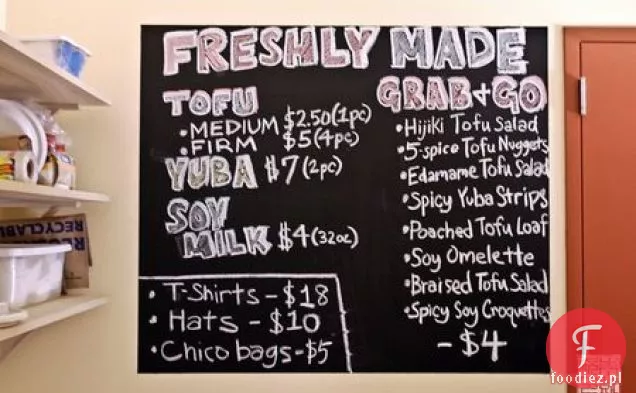 FRESHLY MADE
TOFU
• MEDIUM $2.50 (1pc)
• FIRM $5 (4pc)
YUBA $7 (2pc)
SOY
MILK $4 (32oz)
• T-Shirts - $18
• Hats - $10
• Chico bags - $5
GRAB + GO
• Hijiki Tofu Salad
• 5-spice Tofu Nuggets
• Edamame Tofu Salad
• Spicy Yuba Strips
• Poached Tofu Loaf
• Soy Omelette
• Braised Tofu Salad
• Spicy Soy Croquettes
- $4
RECYCLABL
F
foodiez.pl